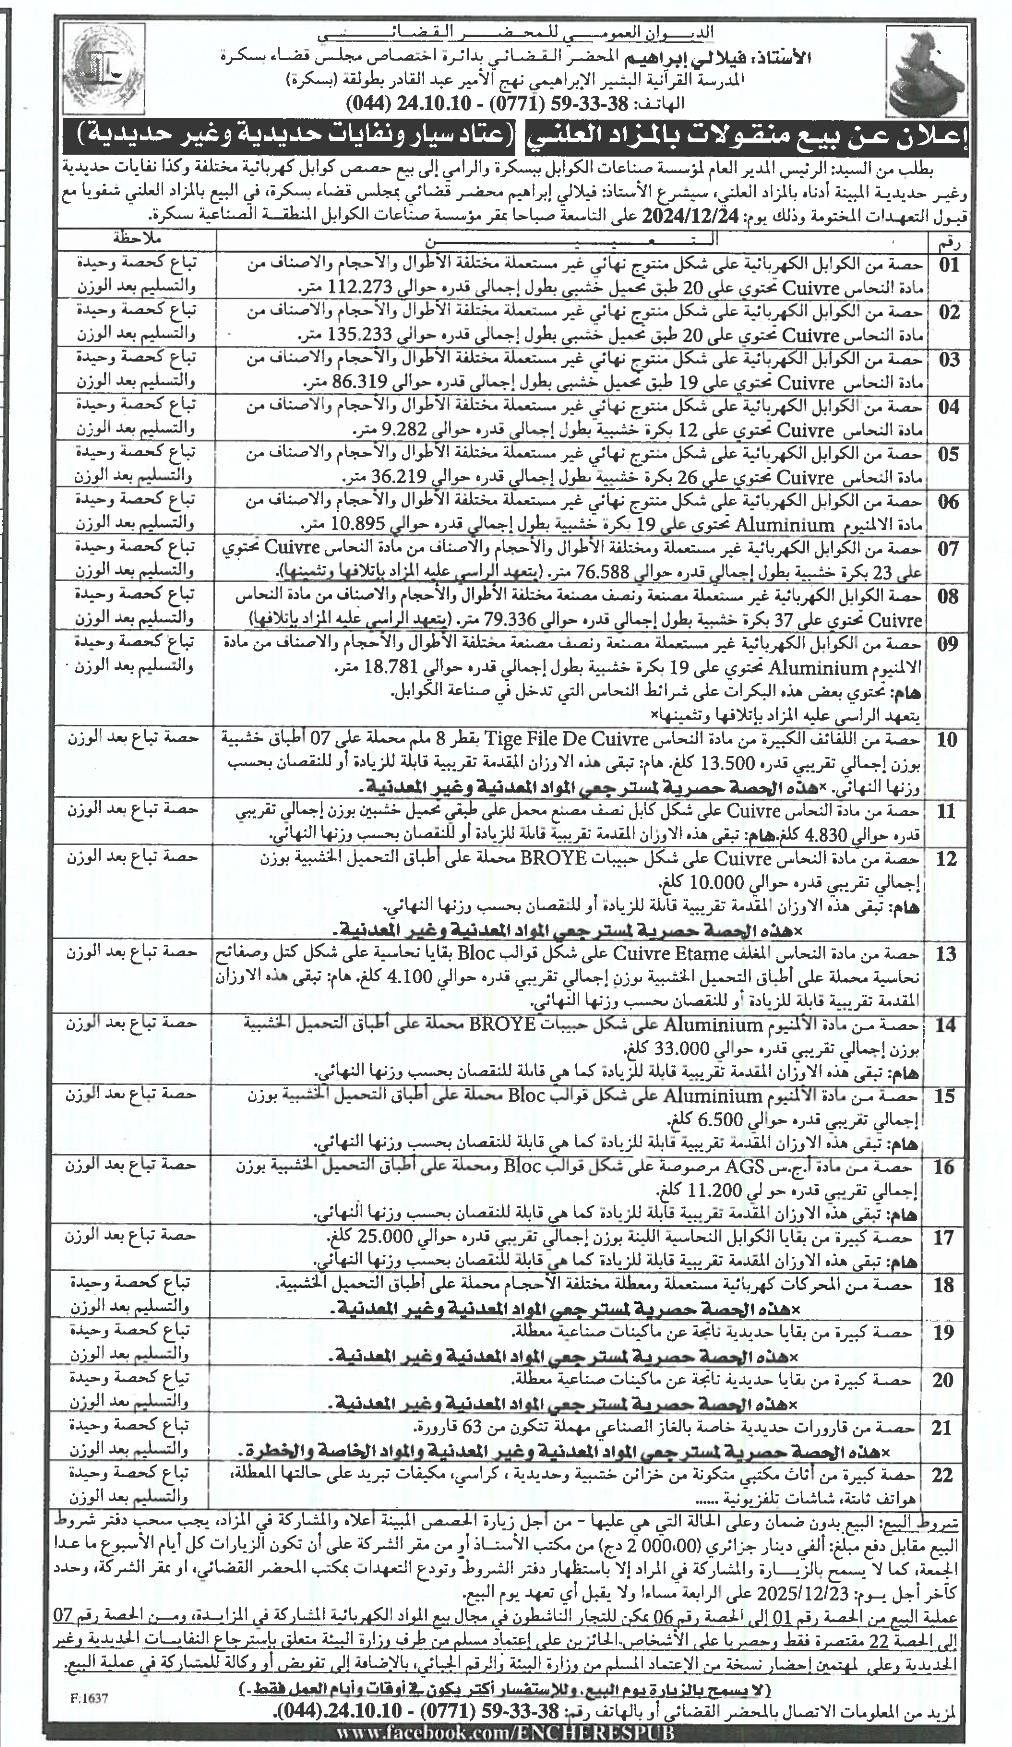 الديوان العمومي للمحضر القضائي
الأستاذ: فيلالي إبراهيم المحضر القضائي بدائرة اختصاص مجلس قضاء بسكرة
المدرسة القرآنية البشير الإبراهيمي نهج الأمير عبد القادر بطولقة (بسكرة)
الهاتف: 38-33-59 (0771) - 24.10.10 (044)
إعلان عن بيع منقولات بالمزاد العلني (عتاد سيار ونفايات حديدية وغير حديدية)
بطلب من السيد: الرئيس المدير العام لمؤسسة صناعات الكوابل ببسكرة والرامي إلى بيع حصص كوابل كهربائية مختلفة وكذا نفايات حديدية
وغير حديدية المبينة أدناه بالمزاد العلني، سيشرع الأستاذ: فيلالي إبراهيم محضر قضائي بمجلس قضاء بسكرة، في البيع بالمزاد العلني شفويا مع
قبول التعهدات المختومة وذلك يوم: 2024/12/24 على التاسعة صباحا بمقر مؤسسة صناعات الكوابل المنطقة الصناعية بسكرة.
رقم التعيين ملاحظة
01 حصة من الكوابل الكهربائية على شكل منتوج نهائي غير مستعملة مختلفة الأطوال والأحجام والاصناف من تباع كحصة وحيدة
مادة النحاس Cuivre تحتوي على 20 طبق تحميل خشبي بطول إجمالي قدره حوالي 112.273 متر. والتسليم بعد الوزن
02 حصة من الكوابل الكهربائية على شكل منتوج نهائي غير مستعملة مختلفة الأطوال والأحجام والاصناف من تباع كحصة وحيدة
مادة النحاس Cuivre تحتوي على 20 طبق تحميل خشبي بطول إجمالي قدره حوالي 135.233 متر. والتسليم بعد الوزن
03 حصة من الكوابل الكهربائية على شكل منتوج نهائي غير مستعملة مختلفة الأطوال والأحجام والاصناف من تباع كحصة وحيدة
مادة النحاس Cuivre تحتوي على 19 طبق تحميل خشبي بطول إجمالي قدره حوالي 86.319 متر. والتسليم بعد الوزن
04 حصة من الكوابل الكهربائية على شكل منتوج نهائي غير مستعملة مختلفة الأطوال والأحجام والاصناف من تباع كحصة وحيدة
مادة النحاس Cuivre تحتوي على 12 بكرة خشبية بطول إجمالي قدره حوالي 9.282 متر. والتسليم بعد الوزن
05 حصة من الكوابل الكهربائية على شكل منتوج نهائي غير مستعملة مختلفة الأطوال والأحجام والاصناف من تباع كحصة وحيدة
مادة النحاس Cuivre تحتوي على 26 بكرة خشبية بطول إجمالي قدره حوالي 36.219 متر. والتسليم بعد الوزن
06 حصة من الكوابل الكهربائية على شكل منتوج نهائي غير مستعملة مختلفة الأطوال والأحجام والاصناف من تباع كحصة وحيدة
مادة الالمنيوم Aluminium تحتوي على 19 بكرة خشبية بطول إجمالي قدره حوالي 10.895 متر. والتسليم بعد الوزن
07 حصة من الكوابل الكهربائية غير مستعملة ومختلفة الأطوال والأحجام والاصناف من مادة النحاس Cuivre تحتوي تباع كحصة وحيدة
على 23 بكرة خشبية بطول إجمالي قدره حوالي 76.588 متر. (يتعهد الراسي عليه المزاد بإتلافها وتثمينها). والتسليم بعد الوزن
08 حصة الكوابل الكهربائية غير مستعملة مصنعة ونصف مصنعة مختلفة الأطوال والأحجام والاصناف من مادة النحاس تباع كحصة وحيدة
Cuivre تحتوي على 37 بكرة خشبية بطول إجمالي قدره حوالي 79.336 متر. (يتعهد الراسي عليه المزاد بإتلافها) والتسليم بعد الوزن
09 حصة من الكوابل الكهربائية غير مستعملة مصنعة ونصف مصنعة مختلفة الأطوال والأحجام والاصناف من مادة تباع كحصة وحيدة
الالمنيوم Aluminium تحتوي على 19 بكرة خشبية بطول إجمالي قدره حوالي 18.781 متر. والتسليم بعد الوزن
هام: تحتوي بعض هذه البكرات على شرائط النحاس التي تدخل في صناعة الكوابل.
يتعهد الراسي عليه المزاد بإتلافها وتثمينها×
10 حصة من اللفائف الكبيرة من مادة النحاس Tige File De Cuivre بقطر 8 ملم محملة على 07 أطباق خشبية حصة تباع بعد الوزن
بوزن إجمالي تقريبي قدره 13.500 كلغ. هام: تبقى هذه الاوزان المقدمة تقريبية قابلة للزيادة أو للنقصان بحسب
وزنها النهائي. ×هذه الحصة حصرية لمسترجعي المواد المعدنية وغير المعدنية.
11 حصة من مادة النحاس Cuivre على شكل كابل نصف مصنع محمل على طبقي تحميل خشبين بوزن إجمالي تقريبي حصة تباع بعد الوزن
قدره حوالي 4.830 كلغ.هام: تبقى هذه الاوزان المقدمة تقريبية قابلة للزيادة أو للنقصان بحسب وزنها النهائي.
12 حصة من مادة النحاس Cuivre على شكل حبيبات BROYE محملة على أطباق التحميل الخشبية بوزن حصة تباع بعد الوزن
إجمالي تقريبي قدره حوالي 10.000 كلغ.
هام: تبقى هذه الاوزان المقدمة تقريبية قابلة للزيادة أو للنقصان بحسب وزنها النهائي.
×هذه الحصة حصرية لمسترجعي المواد المعدنية وغير المعدنية.
13 حصة من مادة النحاس المغلف Cuivre Etame على شكل قوالب Bloc بقايا نحاسية على شكل كتل وصفائح حصة تباع بعد الوزن
نحاسية محملة على أطباق التحميل الخشبية بوزن إجمالي تقريبي قدره حوالي 4.100 كلغ. هام: تبقى هذه الاوزان
المقدمة تقريبية قابلة للزيادة أو للنقصان بحسب وزنها النهائي.
14 حصة من مادة الألمنيوم Aluminium على شكل حبيبات BROYE محملة على أطباق التحميل الخشبية حصة تباع بعد الوزن
بوزن إجمالي تقريبي قدره حوالي 33.000 كلغ.
هام: تبقى هذه الاوزان المقدمة تقريبية قابلة للزيادة كما هي قابلة للنقصان بحسب وزنها النهائي.
15 حصة من مادة الألمنيوم Aluminium على شكل قوالب Bloc محملة على أطباق التحميل الخشبية بوزن حصة تباع بعد الوزن
إجمالي تقريبي قدره حوالي 6.500 كلغ.
هام: تبقى هذه الاوزان المقدمة تقريبية قابلة للزيادة كما هي قابلة للنقصان بحسب وزنها النهائي.
16 حصة من مادة أ.ج.س AGS مرصوصة على شكل قوالب Bloc ومحملة على أطباق التحميل الخشبية بوزن حصة تباع بعد الوزن
إجمالي تقريبي قدره حوالي 11.200 كلغ.
هام: تبقى هذه الاوزان المقدمة تقريبية قابلة للزيادة كما هي قابلة للنقصان بحسب وزنها النهائي.
17 حصة كبيرة من بقايا الكوابل النحاسية اللينة بوزن إجمالي تقريبي قدره حوالي 25.000 كلغ. حصة تباع بعد الوزن
هام: تبقى هذه الاوزان المقدمة تقريبية قابلة للزيادة كما هي قابلة للنقصان بحسب وزنها النهائي.
18 حصة من المحركات كهربائية مستعملة ومعطلة مختلفة الأحجام محملة على أطباق التحميل الخشبية. تباع كحصة وحيدة
×هذه الحصة حصرية لمسترجعي المواد المعدنية وغير المعدنية. والتسليم بعد الوزن
19 حصة كبيرة من بقايا حديدية ناتجة عن ماكينات صناعية معطلة. تباع كحصة وحيدة
×هذه الحصة حصرية لمسترجعي المواد المعدنية وغير المعدنية. والتسليم بعد الوزن
20 حصة كبيرة من بقايا حديدية ناتجة عن ماكينات صناعية معطلة. تباع كحصة وحيدة
×هذه الحصة حصرية لمسترجعي المواد المعدنية وغير المعدنية. والتسليم بعد الوزن
21 حصة من قارورات حديدية خاصة بالغاز الصناعي مهملة تتكون من 63 قارورة. تباع كحصة وحيدة
×هذه الحصة حصرية لمسترجعي المواد المعدنية وغير المعدنية والمواد الخاصة والخطرة. والتسليم بعد الوزن
22 حصة كبيرة من أثاث مكتبي متكونة من خزائن خشبية وحديدية ، كراسي، مكيفات تبريد على حالتها المعطلة، تباع كحصة وحيدة
هواتف ثابتة، شاشات تلفزيونية ...... والتسليم بعد الوزن
شروط البيع: البيع بدون ضمان وعلى الحالة التي هي عليها - من أجل زيارة الحصص المبينة أعلاه والمشاركة في المزاد، يجب سحب دفتر شروط
البيع مقابل دفع مبلغ: ألفي دينار جزائري (2 000،00 دج) من مكتب الأستاذ أو من مقر الشركة على أن تكون الزيارات كل أيام الأسبوع ما عدا
الجمعة، كما لا يسمح بالزيارة والمشاركة في المزاد إلا باستظهار دفتر الشروط وتودع التعهدات بمكتب المحضر القضائي، أو بمقر الشركة، وحدد
كآخر أجل يوم: 2025/12/23 على الرابعة مساءا ولا يقبل أي تعهد يوم البيع.
عملية البيع من الحصة رقم 01 إلى الحصة رقم 06 يمكن للتجار الناشطون في مجال بيع المواد الكهربائية المشاركة في المزايدة، ومن الحصة رقم 07
إلى الحصة 22 مقتصرة فقط وحصريا على الأشخاص الحائزين على إعتماد مسلم من طرف وزارة البيئة متعلق بإسترجاع النفايات الحديدية وغير
الحديدية وعلى المهتمين إحضار نسخة من الاعتماد المسلم من وزارة البيئة والرقم الجبائي، بالإضافة إلى تفويض أو وكالة للمشاركة في عملية البيع.
(لا يسمح بالزيارة يوم البيع. وللإستفسار أكثر يكون في أوقات وأيام العمل فقط.)
لمزيد من المعلومات الاتصال بالمحضر القضائي أو بالهاتف رقم: 38-33-59 (0771) - 24.10.10.(044).
F.1637
www.facebook.com/ENCHERESPUB